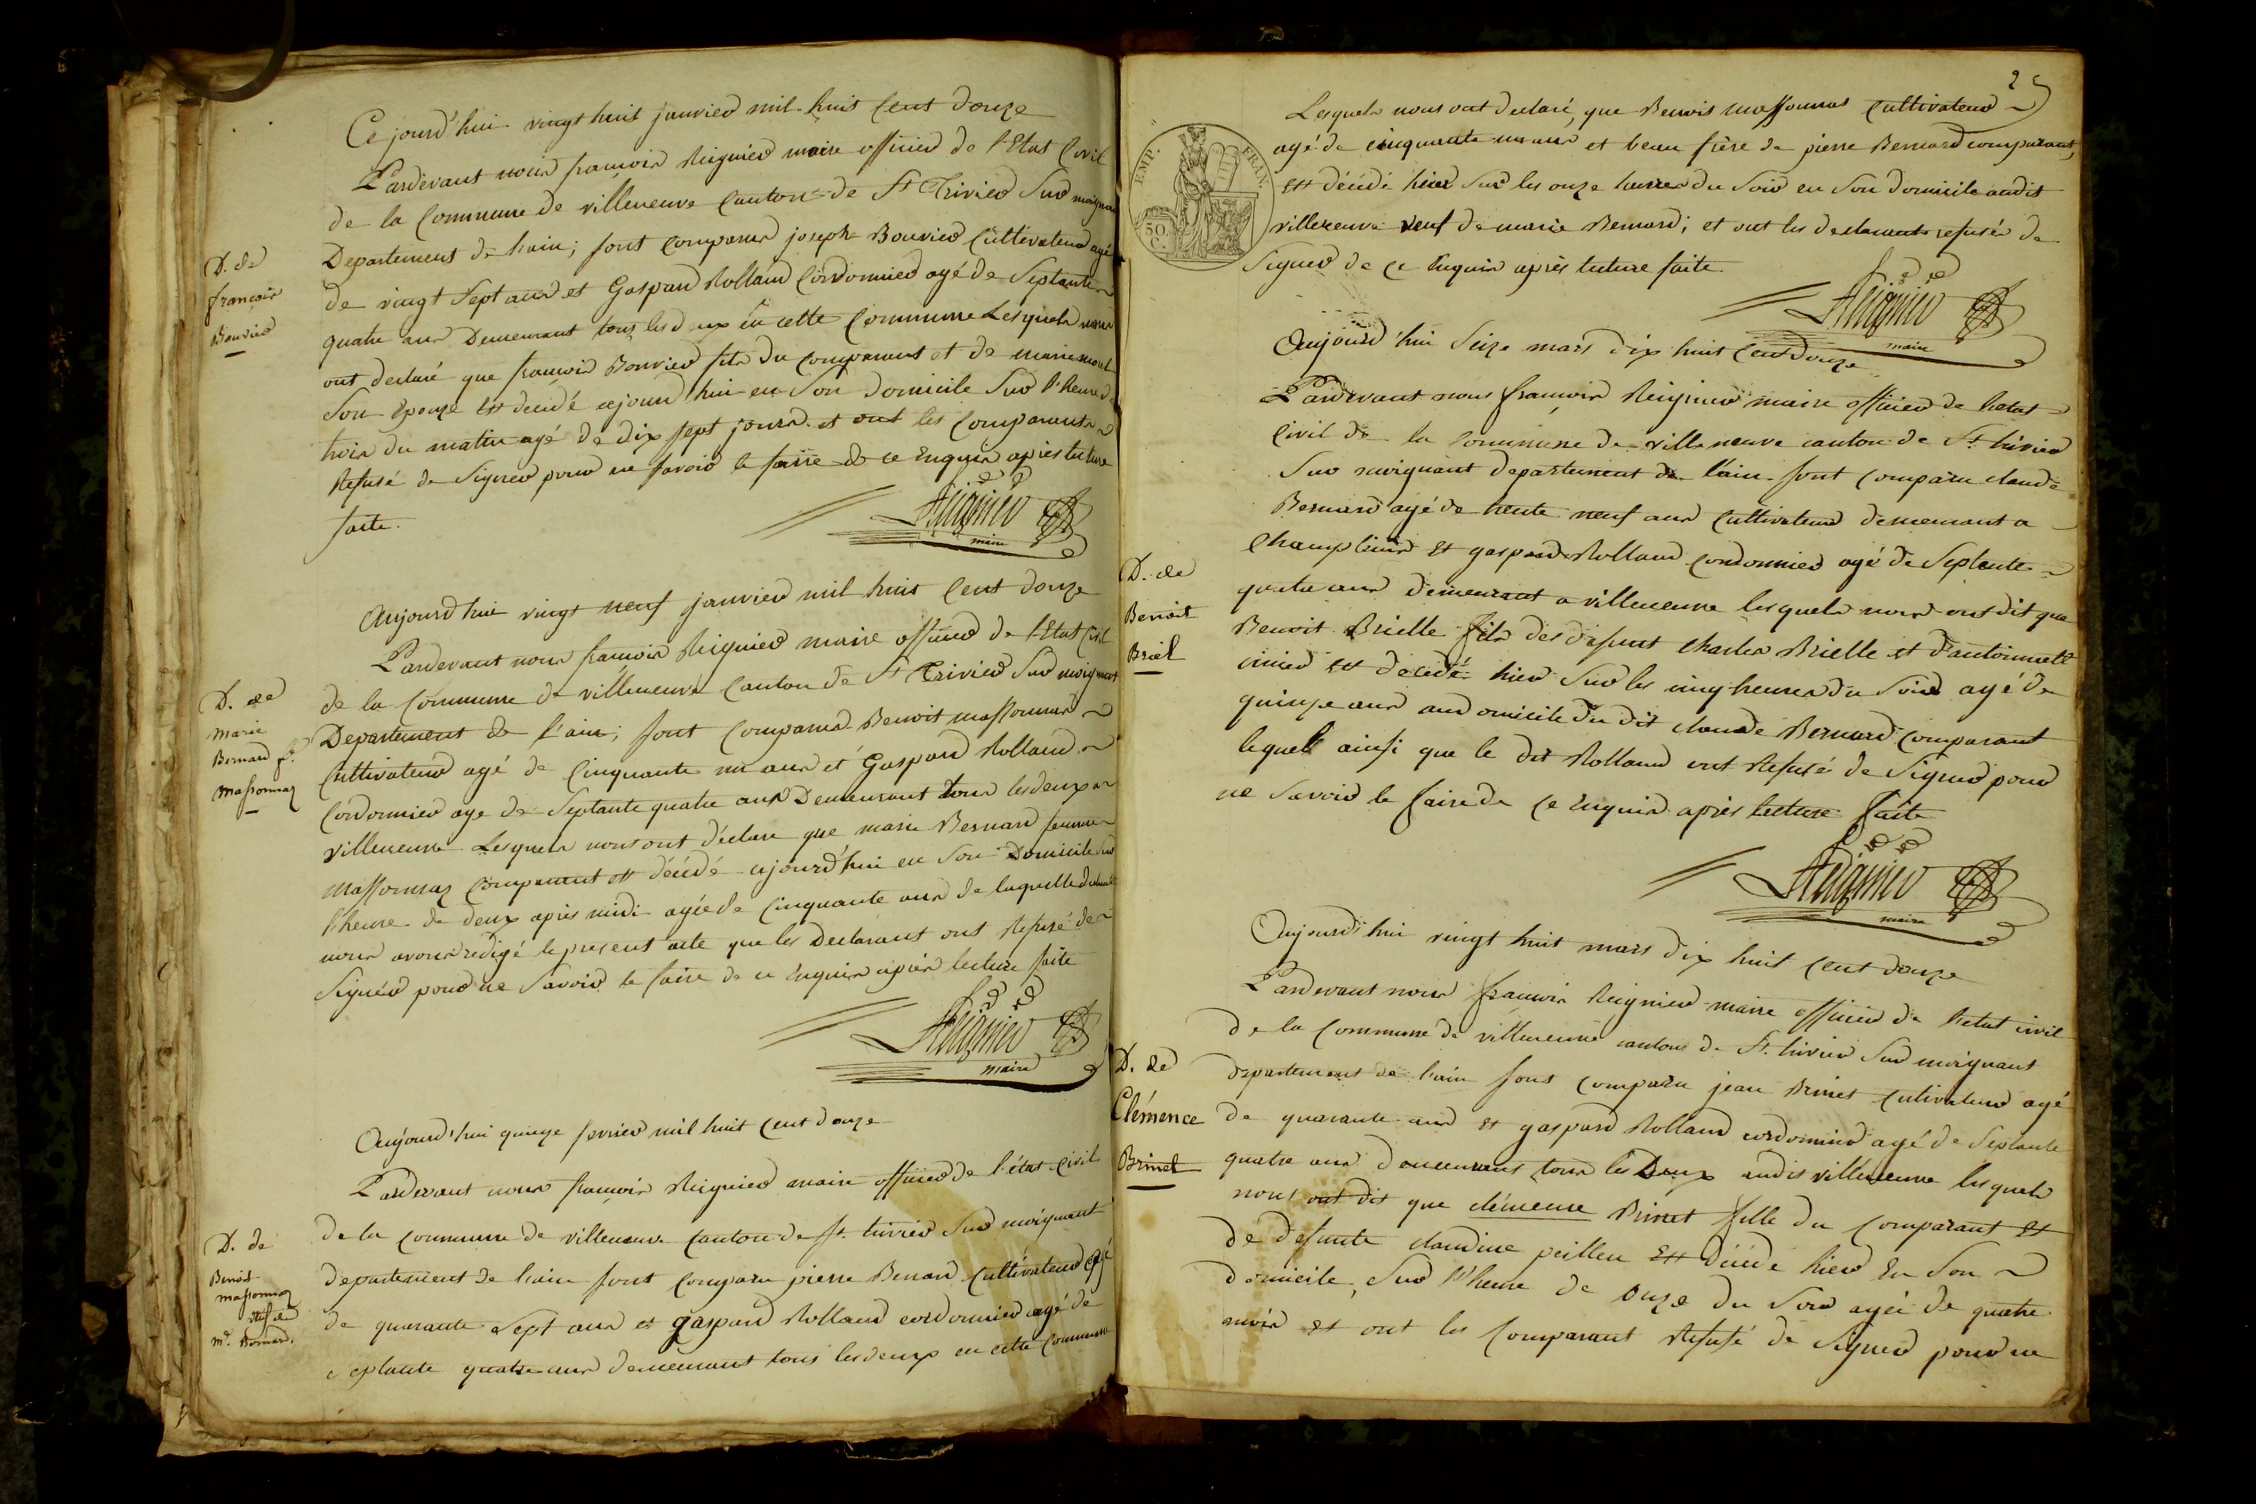 Ce jourd'hui vingt huit janvier mil huit Cent douze
Pardevant nous françois Reignier maire officier de l'Etat Civil
de la Commune de villeneuve Canton de St Trivier Sur moignan
Departement de l'ain; sont Comparus joseph Bouvier Cultivateur agé
de vingt Sept ans et Gaspard Rolland Cordonnier agé de Septante
quatre ans Demeurant tous les deux en cette Commune Lesquels nous
ont declaré que françois Bouvier fils du comparant et de marie
Son Epouze est decédé cejourd'hui en Son domicile Sur l'heure de
trois du matin agé de dix sept jours. et ont les Comparants
Refusé de Signer pour ne savoir le faire de ce Enquis après lecture
faite.
Reignier
maire
D. de
françois
Bouvier
Aujourd'hui vingt neuf janvier mil huit Cent douze
Pardevant nous francois Reignier maire officier de l'Etat Civil
de la Commune de villeneuve Canton de St Trivier Sur moignant
Departement de l'ain; sont Comparus Benoit massonnas
Cultivateur agé de Cinquante un ans et Gaspard Rolland
Cordonnier age de Septante quatre ans Demeurant tous les deux a
villeneuve Lesquels nous ont déclare que marie Bernard femme
massonnaz Comparant est décédé cejourd'hui en Son Domicile Sur
l'heure de deux après midi agée de Cinquante ans de laquelle
nous avons redigé le present acte que les Declarant ont Refusé de
Signér pour ne Savoir le faire de ce Enquis après lecture faite
Reignier
maire
D. de
marie
Bernard fe.
massonnaz
Aujourd'hui quinze fevrier mil huit Cent douze
Pardevant nous françois Reignier maire officier de l'état Civil
de la Commune de villeneuve Canton de St. trivier Sur moignant
departement de l'ain sont Comparu pierre Benard Cultivateur agé
de quarante Sept ans et gaspard Rolland cordonnier agé de
Septante quatre ans demeurant tous les deux en cette Commune
D. de
Benoit
massonnaz
veuf de
me. Bernard.
2
Lesquels nous ont declaré, que Benois massonnas Cultivateur
agé de cinquante un ans et beau frère de pierre Bernard comparant,
est décédé hier Sur les onze heures du Soir en Son domicile audit
villeneuve veuf de marie Bernard; et ont les declarants refusés de
Signer de ce Enquis après lecture faite.
Reignier
maire
Aujourd'hui Seize mars dix huit Cent Douze
Pardevant nous françois Reignier maire officier de l'etat
Civil de la Commune de villeneuve canton de St. trivier
Sur moignant departement de l'ain sont Comparu claude
Bernard agé de trente neuf ans Cultivateur demeurant a
Et gaspard Rolland cordonnier agé de Septente
quatre ans demeurant a villeneuve lesquels nous ont dit que
Benoit Brielle fils des defunt charles Brielle et d'antoinette
est decédé hier Sur les cinq heures du Soir agé de
quinze ans au domicile du dit claude Bernard Comparant
lequel ainsi que le dit Rolland ont Refusé de Signer pour
ne Savoir le faire de Ce Enquis après lecture faite
Reignier
maire
D. de
Benoit
Briel
Aujourd'hui vingt huit mars dix huit Cent douze
Pardevant nous françois Reignier maire officier de l'etat civil
de la Commune de villeneuve canton de St. trivier Sur moignant
departement de l'ain sont Comparu jean Brinet cultivateur agé
de quarante ans Et gaspard Rolland cordonnier agé de Septante
quatre ans demeurant tous les Deux audit villeneuve lesquels
nous ont dit que clémence Brinet fille du Comparant Et
de defunte claudine peilleu Est décéde hier En Son
domicile, Sur l'heure de onze du Soir agée de quatre
mois et ont les Comparant Refusé de Signer pour ne
D. de
Clémence
Brinet
EMP. FRAN.
50
C.